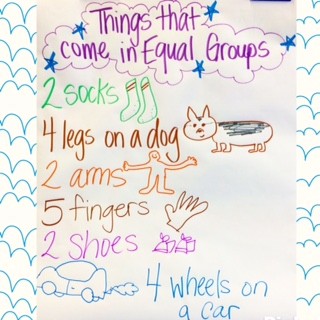 Things that
come in Equal Groups
2 socks
4 legs on a dog
2 arms
5 fingers
2 shoes
4 wheels on
a car